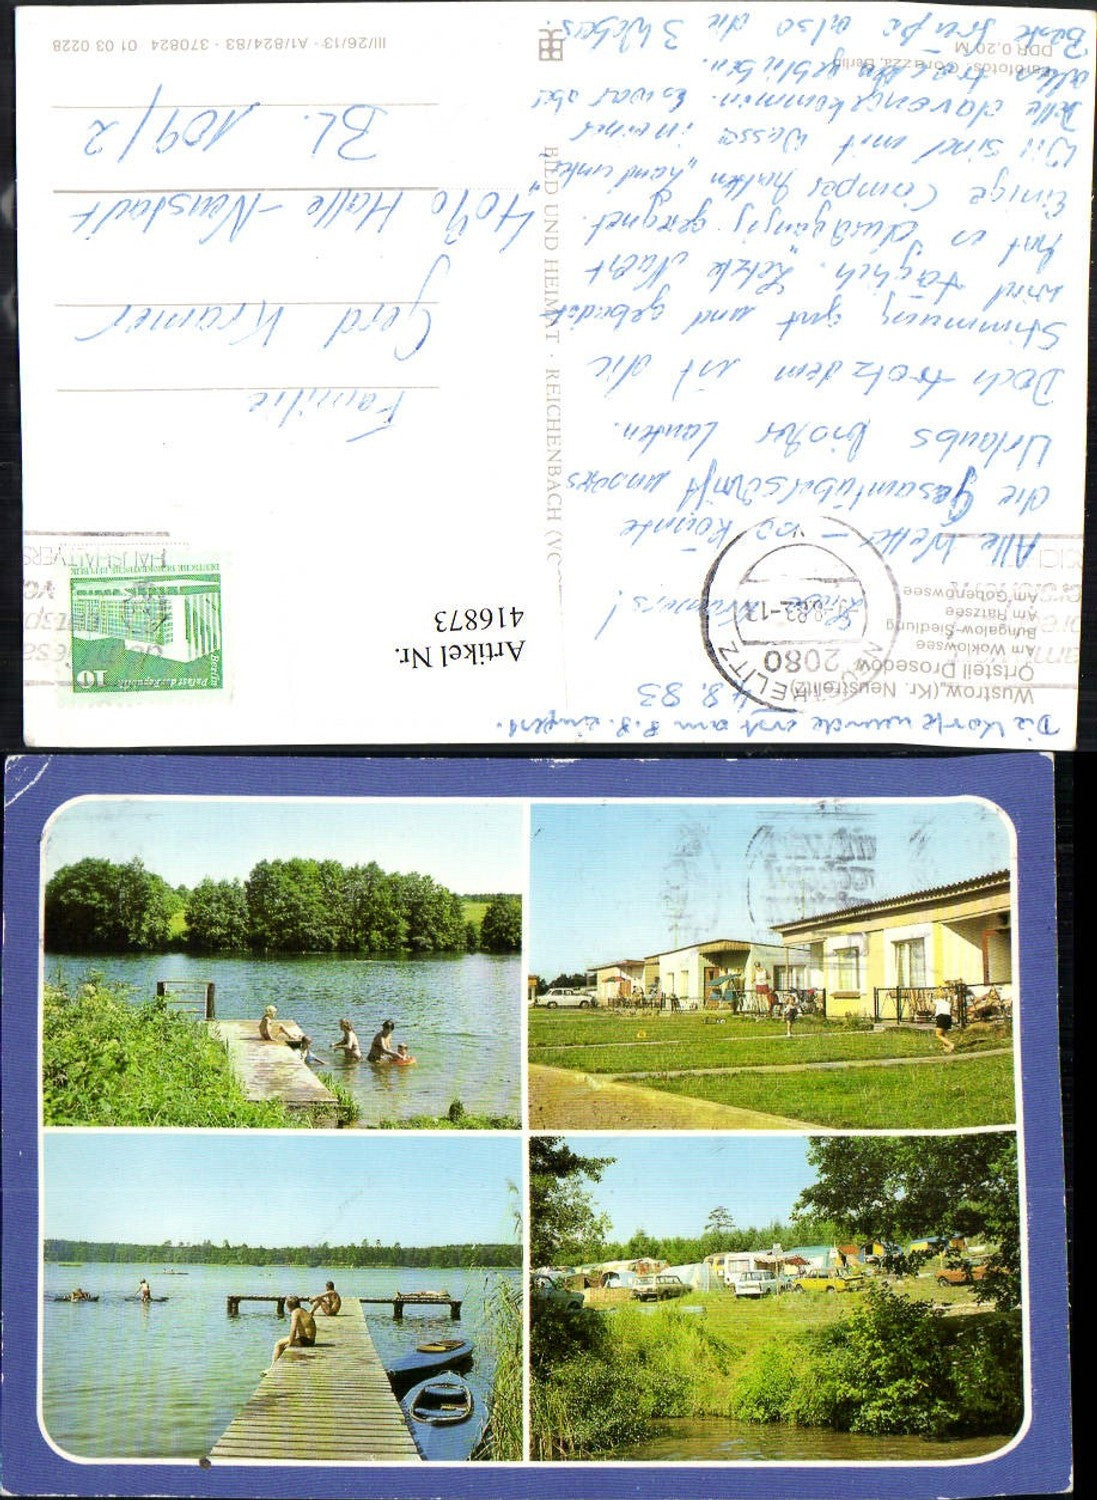 Die Karte wurde erst am 8.8. eingew.
4.8.83
Wustrow (Kr. Neustrelitz)
Ortsteil Drosedow
Am Woklowsee
Bungalow-Siedlung
Am Rätzsee
Am Gobenowsee
Liebe Kramers!
Alle Wetter – so könnte
die Gesamtüberschrift unseres
Urlaubs bisher lauten.
Doch trotzdem ist die
Stimmung gut und gebadet
wird täglich. Letzte Nacht
hat es durchgängig geregnet.
Einige Camper hatten "Land unter"
Wir sind mit Wasser in einer
Delle davongekommen. Es war aber
alles trocken geblieben.
Beste Grüße also die 3 Webers.
Farbfotos: Gorazza, Berlin
DDR 0,20 M
BILD UND HEIMAT · REICHENBACH (VO
2080
NEUSTRELITZ
-8.83-13
Palast der Republik
Berlin
10
DEUTSCHE DEMOKRATISCHE REPUBLIK
Artikel Nr.
416873
Familie
Gerd Kramer
4090 Halle-Neustadt
Bl. 109/2
III/26/13 · A1/824/83 · 370824 01 03 0228